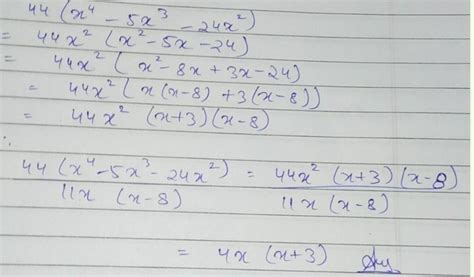 44 (x⁴ - 5x³ - 24x²)
= 44x² (x² - 5x - 24)
= 44x² (x² - 8x + 3x - 24)
= 44x² (x(x-8) + 3(x-8))
= 44x² (x+3) (x-8)
∴
44 (x⁴ - 5x³ - 24x²) = 44x² (x+3) (x-8)
11x (x-8) 11x (x-8)
= 4x (x+3) Ans